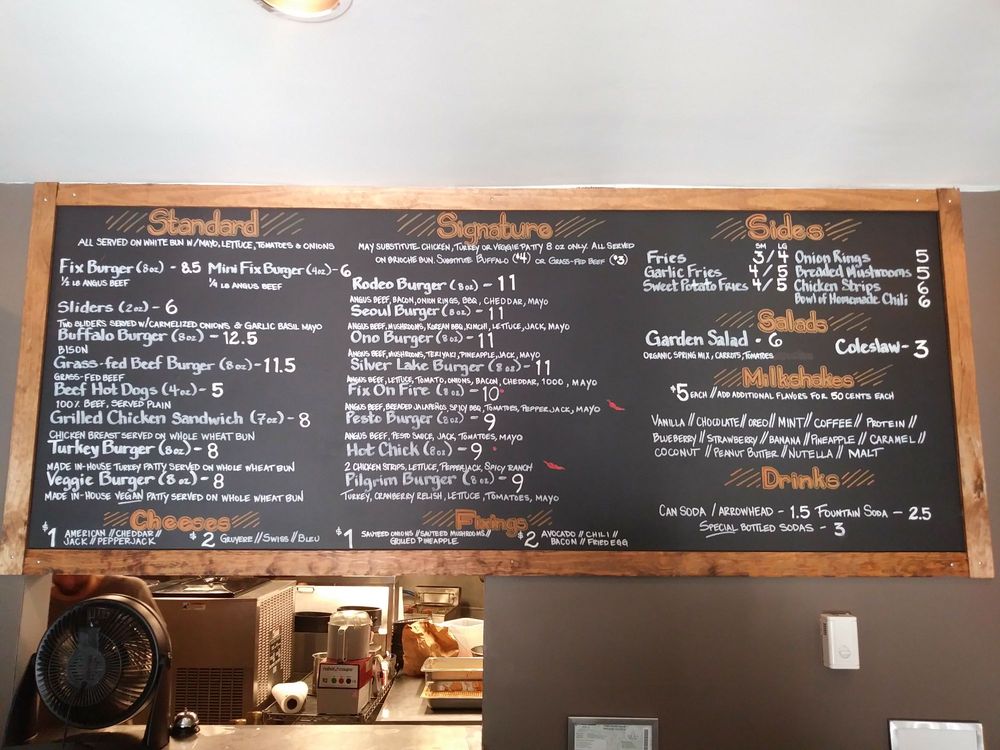 Standard
ALL SERVED ON WHITE BUN W/MAYO, LETTUCE, TOMATOES & ONIONS
Fix Burger (8oz) - 8.5 Mini Fix Burger (4oz) - 6
½ LB ANGUS BEEF ¼ LB ANGUS BEEF
Sliders (2oz) - 6
TWO SLIDERS SERVED W/CARMELIZED ONIONS & GARLIC BASIL MAYO
Buffalo Burger (8oz) - 12.5
BISON
Grass-fed Beef Burger (8oz) - 11.5
GRASS-FED BEEF
Beef Hot Dogs (4oz) - 5
100% BEEF, SERVED PLAIN
Grilled Chicken Sandwich (7oz) - 8
CHICKEN BREAST SERVED ON WHOLE WHEAT BUN
Turkey Burger (8oz) - 8
MADE IN-HOUSE TURKEY PATTY SERVED ON WHOLE WHEAT BUN
Veggie Burger (8oz) - 8
MADE IN-HOUSE VEGAN PATTY SERVED ON WHOLE WHEAT BUN
Cheeses
$1 AMERICAN // CHEDDAR //
JACK // PEPPERJACK
$2 GRUYERE // SWISS // BLEU
Signature
MAY SUBSTITUTE CHICKEN, TURKEY OR VEGGIE PATTY 8 OZ ONLY. ALL SERVED
ON BRIOCHE BUN. SUBSTITUTE BUFFALO ($4) OR GRASS-FED BEEF ($3)
Rodeo Burger (8oz) - 11
ANGUS BEEF, BACON, ONION RINGS, BBQ, CHEDDAR, MAYO
Seoul Burger (8oz) - 11
ANGUS BEEF, MUSHROOMS, KOREAN BBQ, KIMCHI, LETTUCE, JACK, MAYO
Ono Burger (8oz) - 11
ANGUS BEEF, MUSHROOMS, TERIYAKI, PINEAPPLE, JACK, MAYO
Silver Lake Burger (8oz) - 11
ANGUS BEEF, LETTUCE, TOMATO, ONIONS, BACON, CHEDDAR, 1000, MAYO
Fix On Fire (8oz) - 10
ANGUS BEEF, BREADED JALAPEÑOS, SPICY BBQ, TOMATOES, PEPPERJACK, MAYO
Pesto Burger (8oz) - 9
ANGUS BEEF, PESTO SAUCE, JACK, TOMATOES, MAYO
Hot Chick (8oz) - 9
2 CHICKEN STRIPS, LETTUCE, PEPPERJACK, SPICY RANCH
Pilgrim Burger (8oz) - 9
TURKEY, CRANBERRY RELISH, LETTUCE, TOMATOES, MAYO
Fixings
$1 SAUTEED ONIONS // SAUTEED MUSHROOMS //
GRILLED PINEAPPLE
$2 AVOCADO // CHILI //
BACON // FRIED EGG
Sides
SM LG
Fries 3/4
Garlic Fries 4/5
Sweet Potato Fries 4/5
Onion Rings 5
Breaded Mushrooms 5
Chicken Strips 6
Bowl of Homemade Chili 6
Salads
Garden Salad - 6
ORGANIC SPRING MIX, CARROTS, TOMATOES
Coleslaw - 3
Milkshakes
$5 EACH // ADD ADDITIONAL FLAVORS FOR 50 CENTS EACH
VANILLA // CHOCOLATE // OREO // MINT // COFFEE // PROTEIN //
BLUEBERRY // STRAWBERRY // BANANA // PINEAPPLE // CARAMEL //
COCONUT // PEANUT BUTTER // NUTELLA // MALT
Drinks
CAN SODA / ARROWHEAD - 1.5 FOUNTAIN SODA - 2.5
SPECIAL BOTTLED SODAS - 3
robot coupe